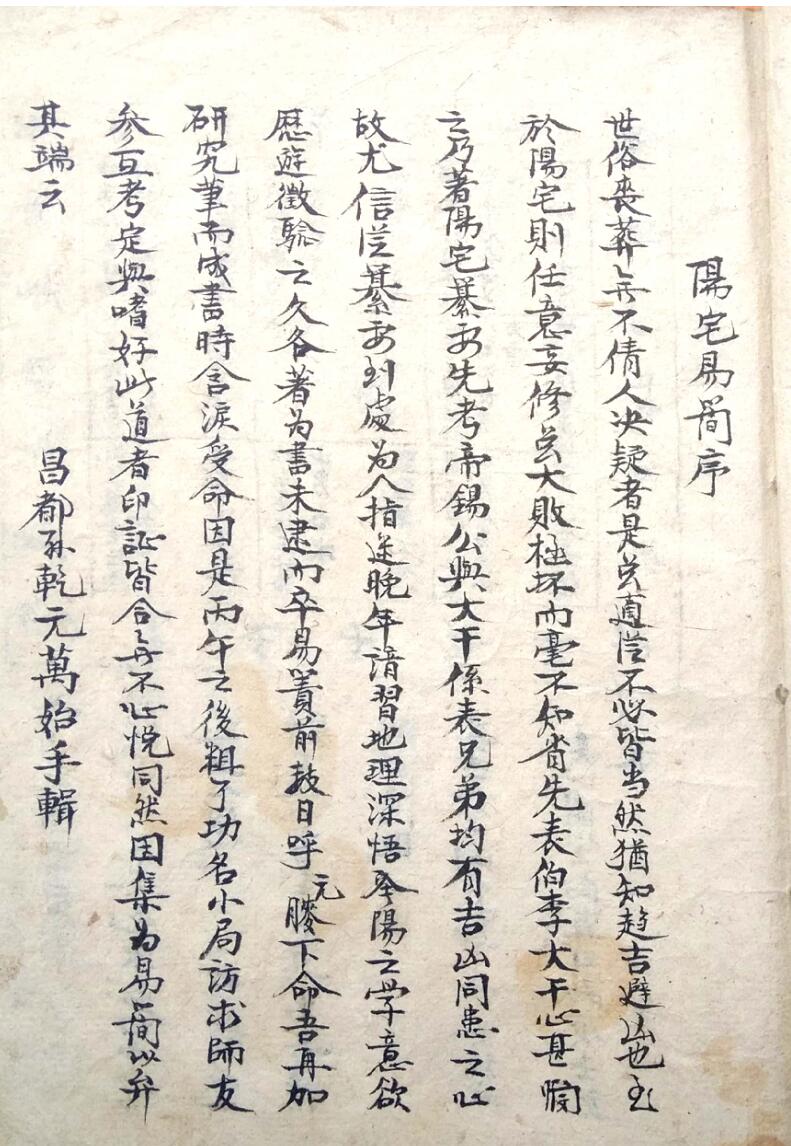 陽宅易簡序
世俗喪葬無不倩人决疑者是㒷適從不必皆当然猶知趋吉避凶也至
於陽宅則任意妄修㒷大敗極坏而毫不知省先表伯李大干心甚憫
之乃著陽宅纂要先考帝錫公與大干係表兄弟均有吉凶同患之心
故尤信從纂要到處为人指迷晚年諳習地理深悟陰陽之学意欲
歷遊徵驗之久各著为書未逮而卒易簀前数日呼元膝下命吾再加
研究筆而成書時含淚受命因是丙午之後粗了功名小局訪求師友
参互考定與嗜好此道者印証皆合無不心悦同然因集为易簡以弁
其端云
昌都孫乾元萬始手輯